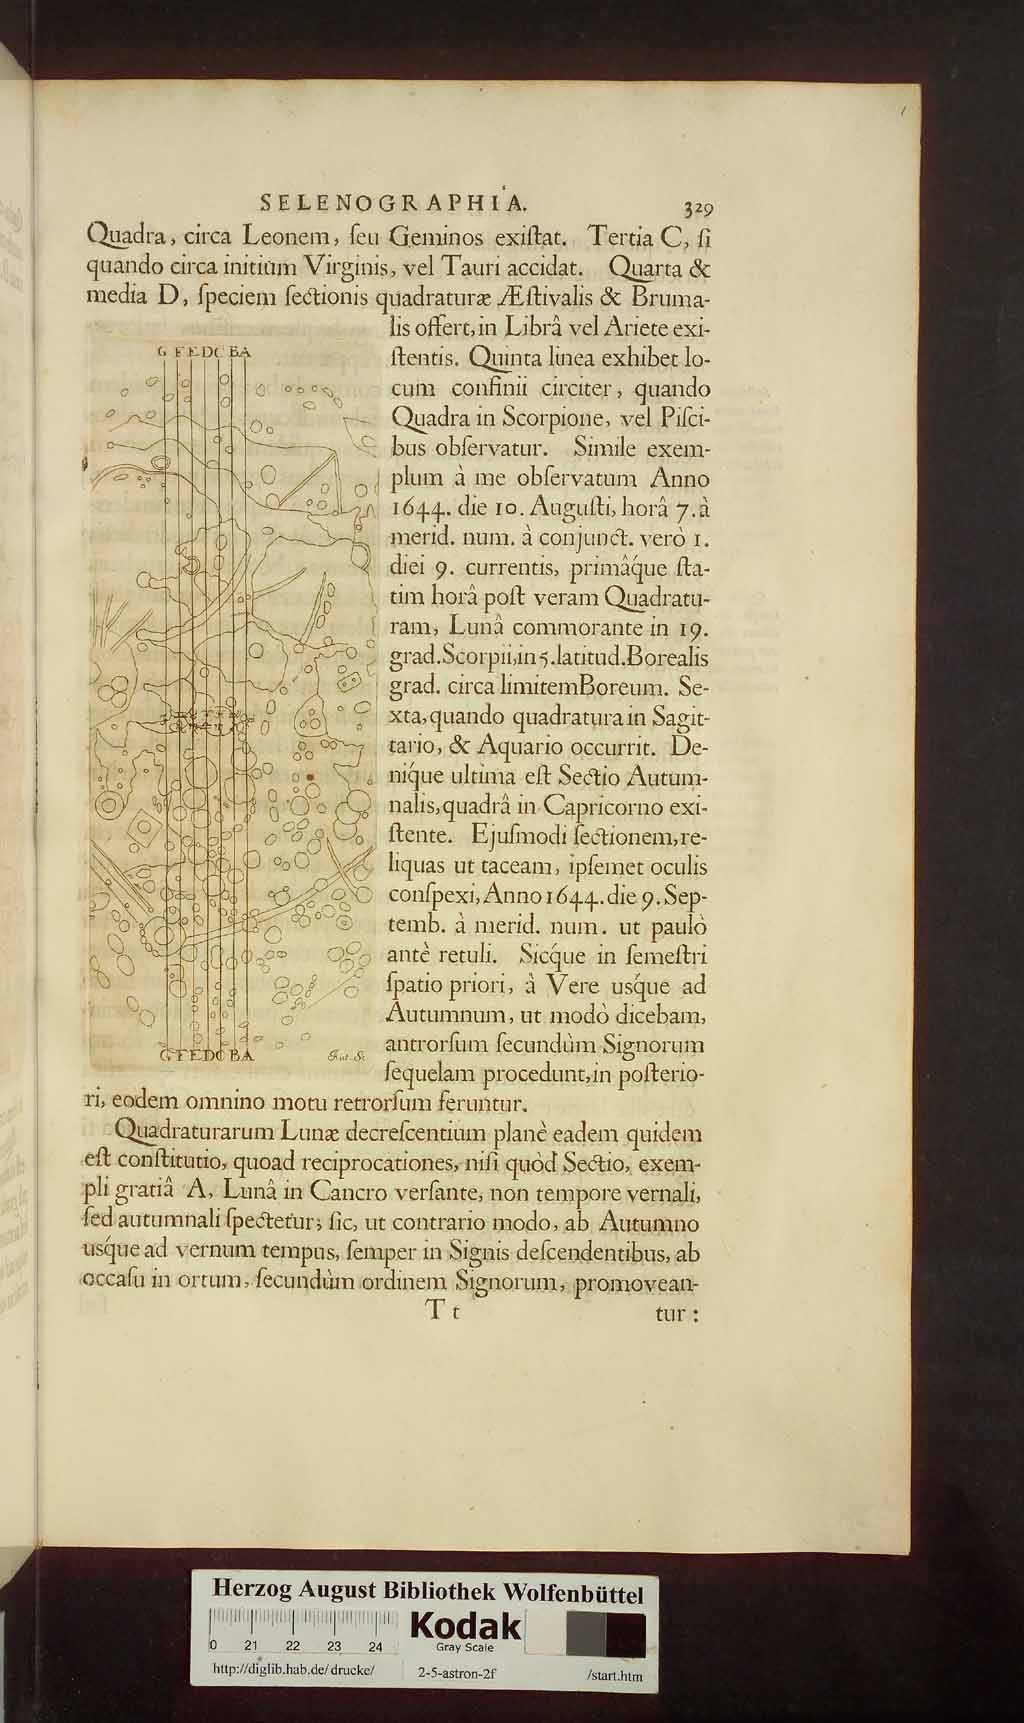 SELENOGRAPHIA.
329
Quadra, circa Leonem, ſeu Geminos exiſtat. Tertia C, ſi
quando circa initium Virginis, vel Tauri accidat. Quarta &
media D, ſpeciem ſectionis quadraturæ Æſtivalis & Bruma-
lis offert, in Librâ vel Ariete exi-
ſtentis. Quinta linea exhibet lo-
cum confinii circiter, quando
Quadra in Scorpione, vel Piſci-
bus obſervatur. Simile exem-
plum à me obſervatum Anno
1644. die 10. Auguſti, horâ 7. à
merid. num. à conjunct. verò 1.
diei 9. currentis, primâq́ue ſta-
tim horâ poſt veram Quadratu-
ram, Lunâ commorante in 19.
grad. Scorpii, in 5. latitud. Borealis
grad. circa limitem Boreum. Se-
xta, quando quadratura in Sagit-
tario, & Aquario occurrit. De-
niq́ue ultima eſt Sectio Autum-
nalis, quadrâ in Capricorno exi-
ſtente. Ejuſmodi ſectionem, re-
liquas ut taceam, ipſemet oculis
conſpexi, Anno 1644. die 9. Sep-
temb. à merid. num. ut paulò
antè retuli. Sicq́ue in ſemeſtri
ſpatio priori, à Vere usq́ue ad
Autumnum, ut modò dicebam,
antrorſum ſecundùm Signorum
ſequelam procedunt, in poſterio-
ri, eodem omnino motu retrorſum feruntur.
Quadraturarum Lunæ decreſcentium planè eadem quidem
eſt conſtitutio, quoad reciprocationes, niſi quòd Sectio, exem-
pli gratiâ A, Lunâ in Cancro verſante, non tempore vernali,
ſed autumnali ſpectetur; ſic, ut contrario modo, ab Autumno
usq́ue ad vernum tempus, ſemper in Signis deſcendentibus, ab
occaſu in ortum, ſecundùm ordinem Signorum, promovean-
T t
tur :
G F E D C B A
G F E D C B A
Herzog August Bibliothek Wolfenbüttel
0 21 22 23 24
Kodak
Gray Scale
http://diglib.hab.de/drucke/ 2-5-astron-2f /start.htm